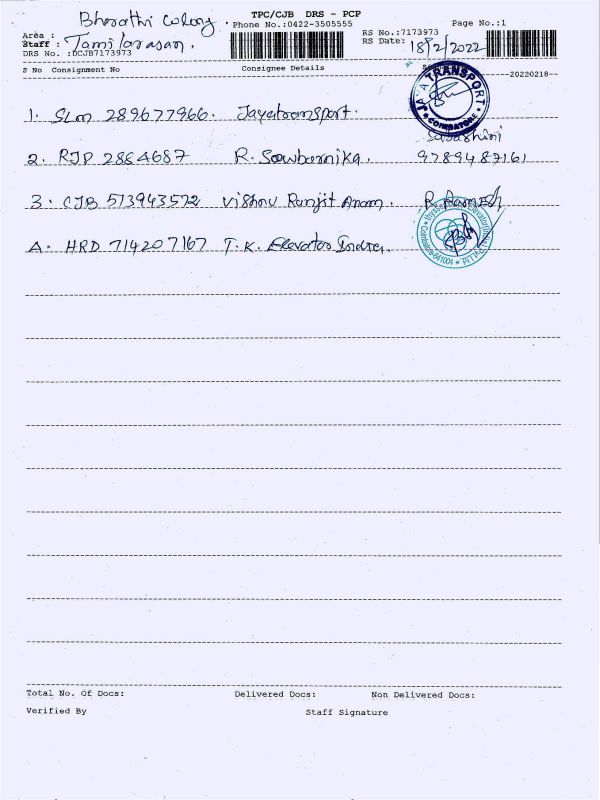 Bharathi Colony.
TPC/CJB DRS - PCP
Page No.:1
Area :
Phone No.:0422-3505555
RS No.:7173973
Staff : Tamilarasan.
RS Date: 18/2/2022
DRS No. :DCJB7173973
S No Consignment No Consignee Details
20220218--
JAYA TRANSPORT
* COIMBATORE *
1. SLM 289677966. Jayatransport.
2. RJP 2864687 R. Sowbarnika. 9789487161
3. CJB 573943572 Vishnu Ranjit Anam. R. Ramesh
4. HRD 714207167 T.K. Elevator
Coimbatore-641004
Total No. Of Docs: Delivered Docs: Non Delivered Docs:
Verified By Staff Signature